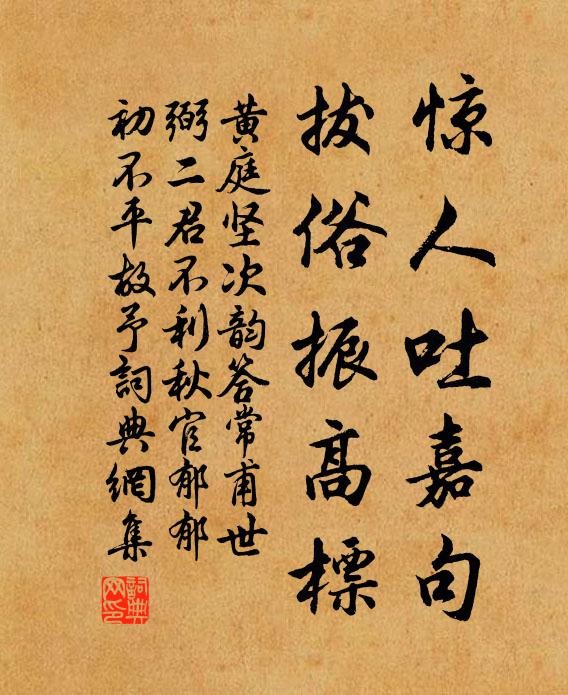 惊人吐嘉句
拔俗振高標
黄庭坚次韵答常甫世
弼二君不利秋官郁郁
初不平故予詞典網集
詞典网印